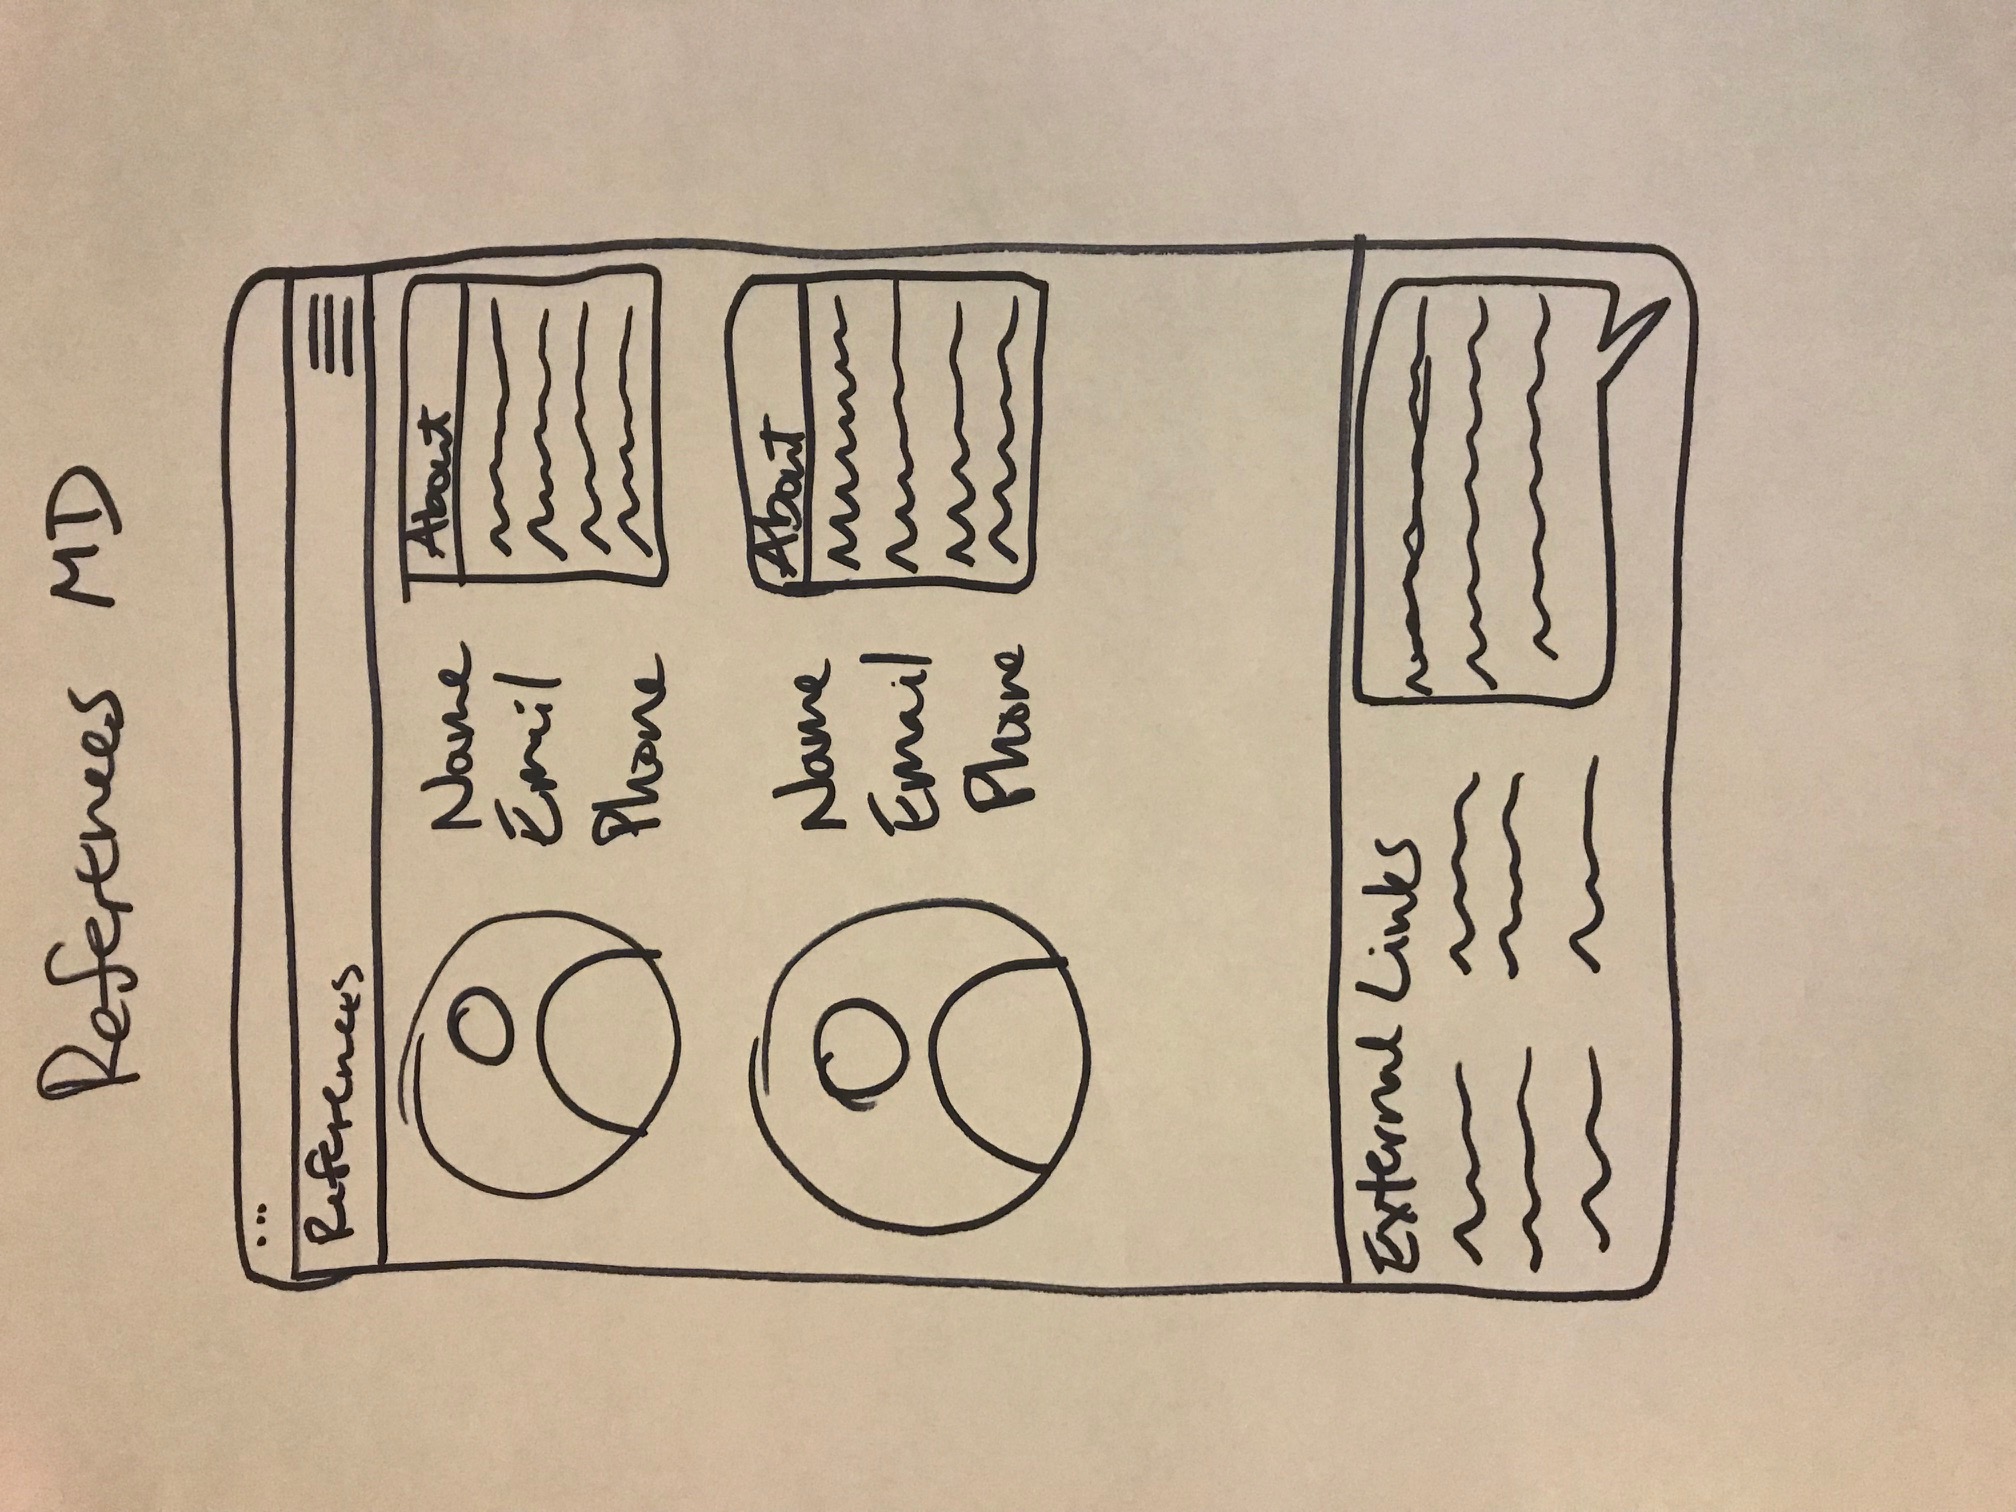 References MD
References
Name
Email
Phone
About
Name
Email
Phone
About
External Links